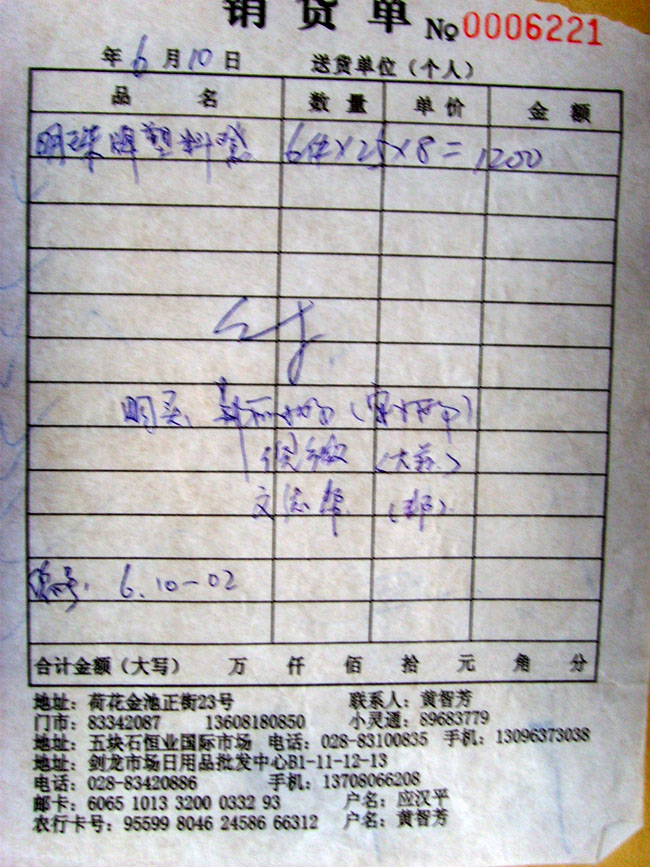 销货单 № 0006221
年 6 月 10 日 送货单位（个人）
品 名 数 量 单 价 金 额
明珠牌塑料凳 6件×25×8=1200
明买:
(大蒜)
(邦)
编号: 6.10-02
合计金额（大写） 万 仟 佰 拾 元 角 分
地址：荷花金池正街23号 联系人：黄智芳
门市：83342087 13608180850 小灵通：89683779
地址：五块石恒业国际市场 电话：028-83100835 手机：13096373038
地址：剑龙市场日用品批发中心B1-11-12-13
电话：028-83420886 手机：13708066208
邮卡：6065 1013 3200 0332 93 户名：应汉平
农行卡号：95599 8046 24586 66312 户名：黄智芳